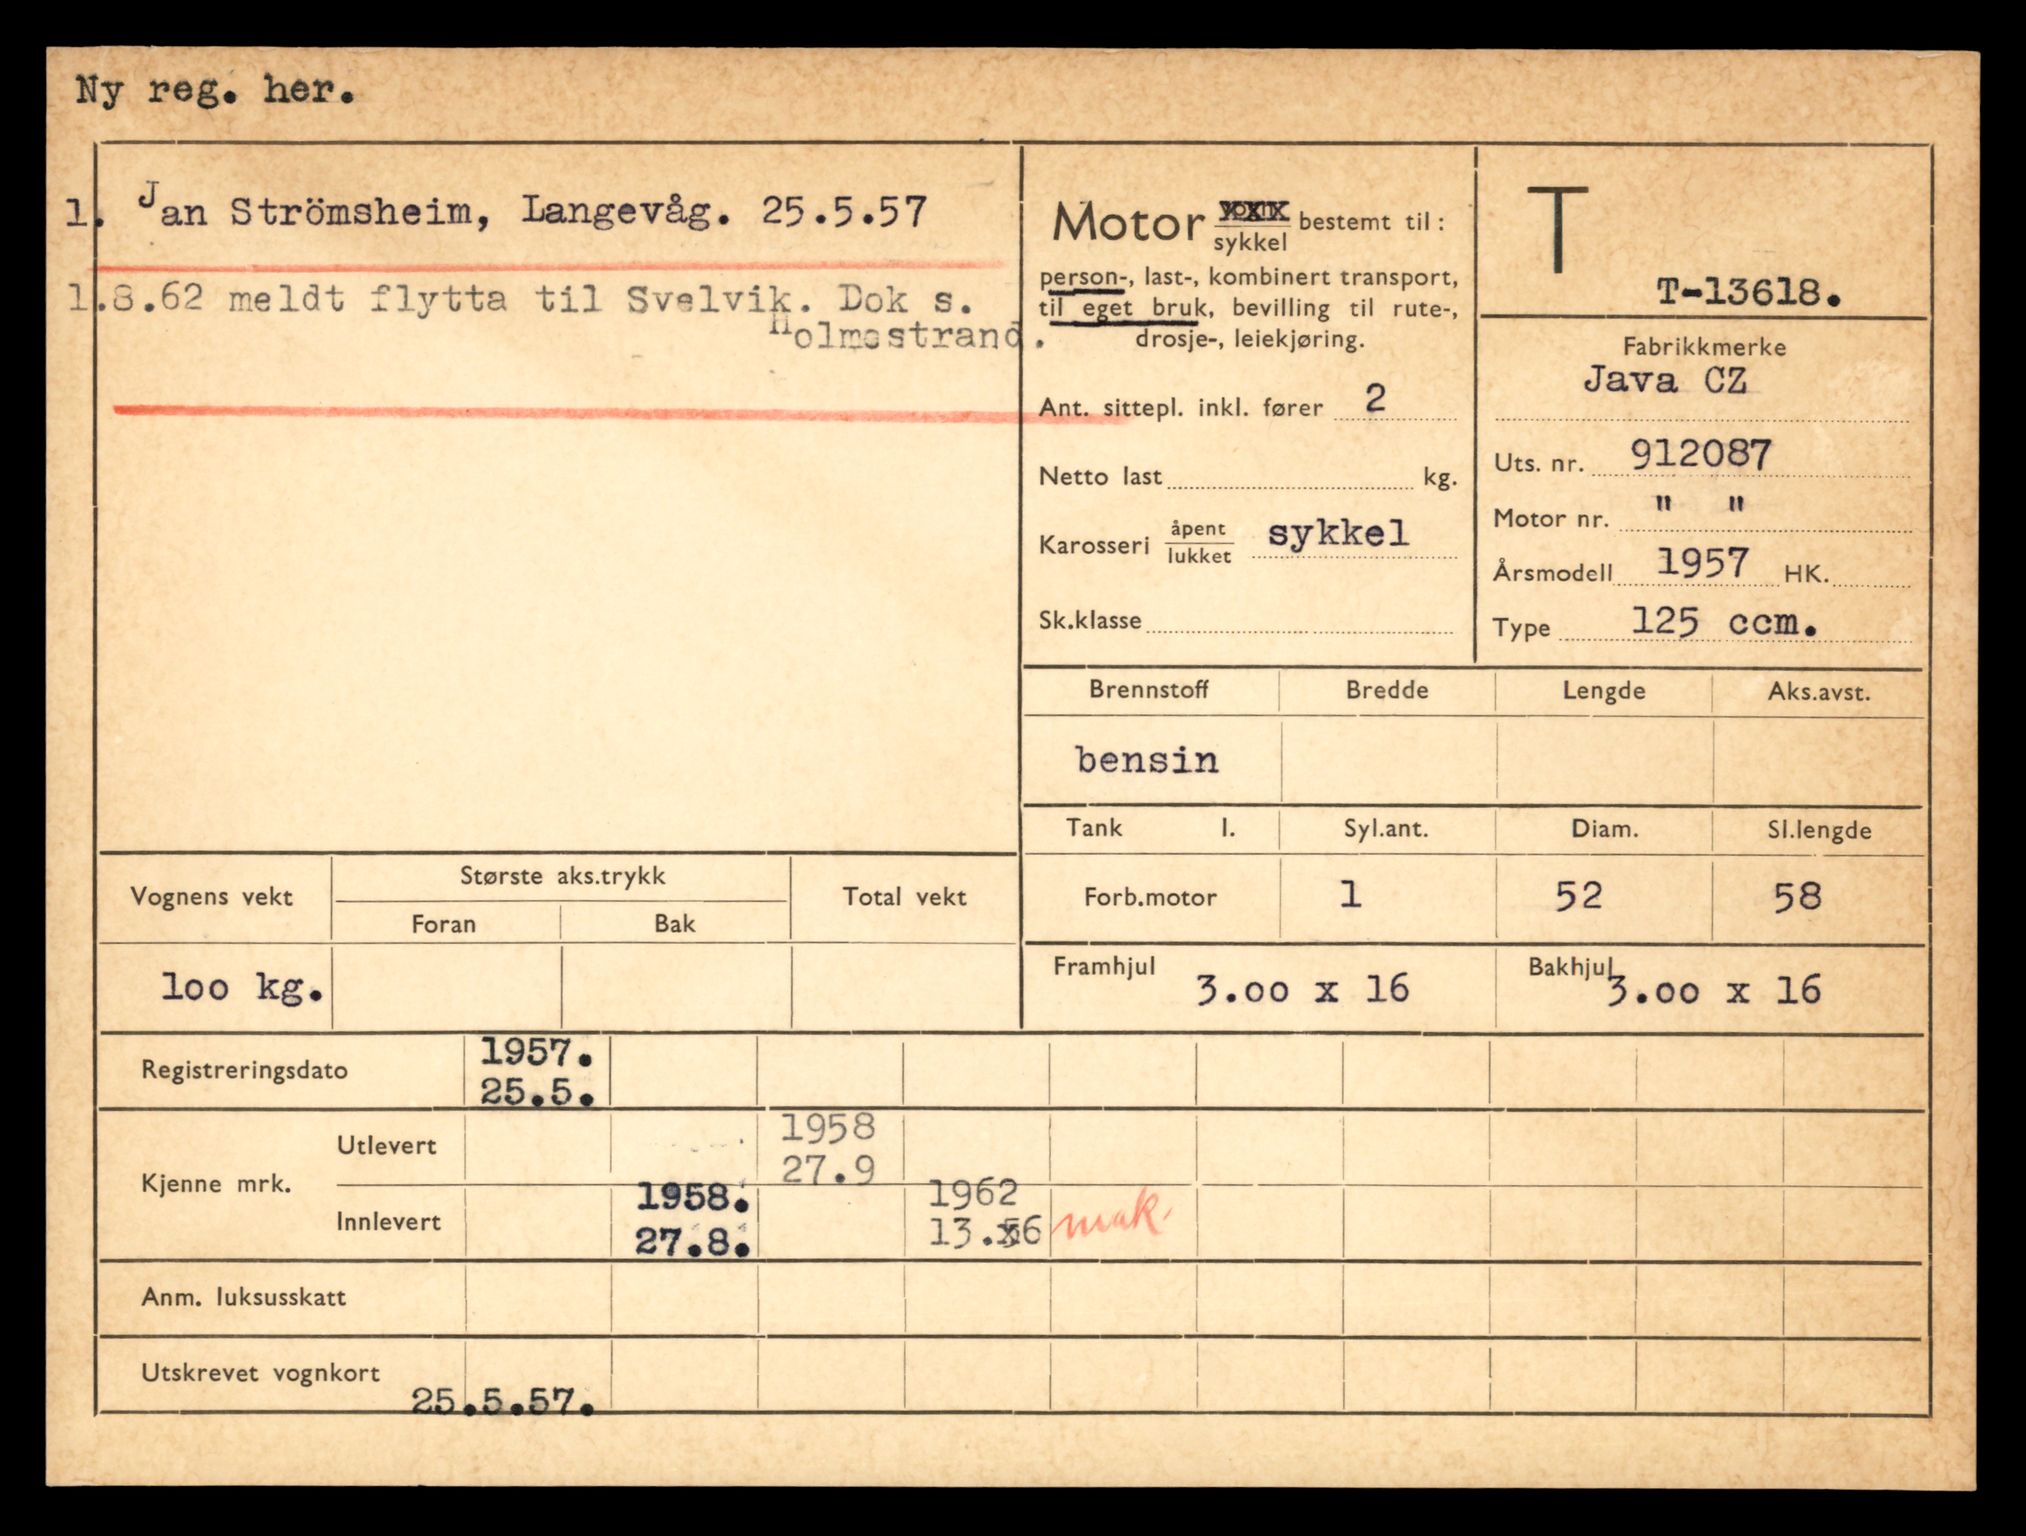 Ny reg. her.
1. Jan Strömsheim, Langevåg. 25.5.57
1.8.62 meldt flytta til Svelvik. Dok s.
Holmestrand.
Motor sykkel bestemt til:
person-, last-, kombinert transport,
til eget bruk, bevilling til rute-,
drosje-, leiekjøring.
Ant. sittepl. inkl. fører 2
Netto last kg.
Karosseri åpent lukket sykkel
Sk.klasse
T
T-13618.
Fabrikkmerke
Java CZ
Uts. nr. 912087
Motor nr. " "
Årsmodell 1957 HK.
Type 125 ccm.
Brennstoff Bredde Lengde Aks.avst.
bensin
Tank l. Syl.ant. Diam. Sl.lengde
Forb.motor 1 52 58
Framhjul 3.oo x 16 Bakhjul 3.oo x 16
Vognens vekt Største aks.trykk Total vekt
Foran Bak
loo kg.
Registreringsdato 1957.
25.5.
Kjenne mrk.
Utlevert 1958
27.9
Innlevert 1958. 1962
27.8. 13.6 mak.
Anm. luksusskatt
Utskrevet vognkort
25.5.57.